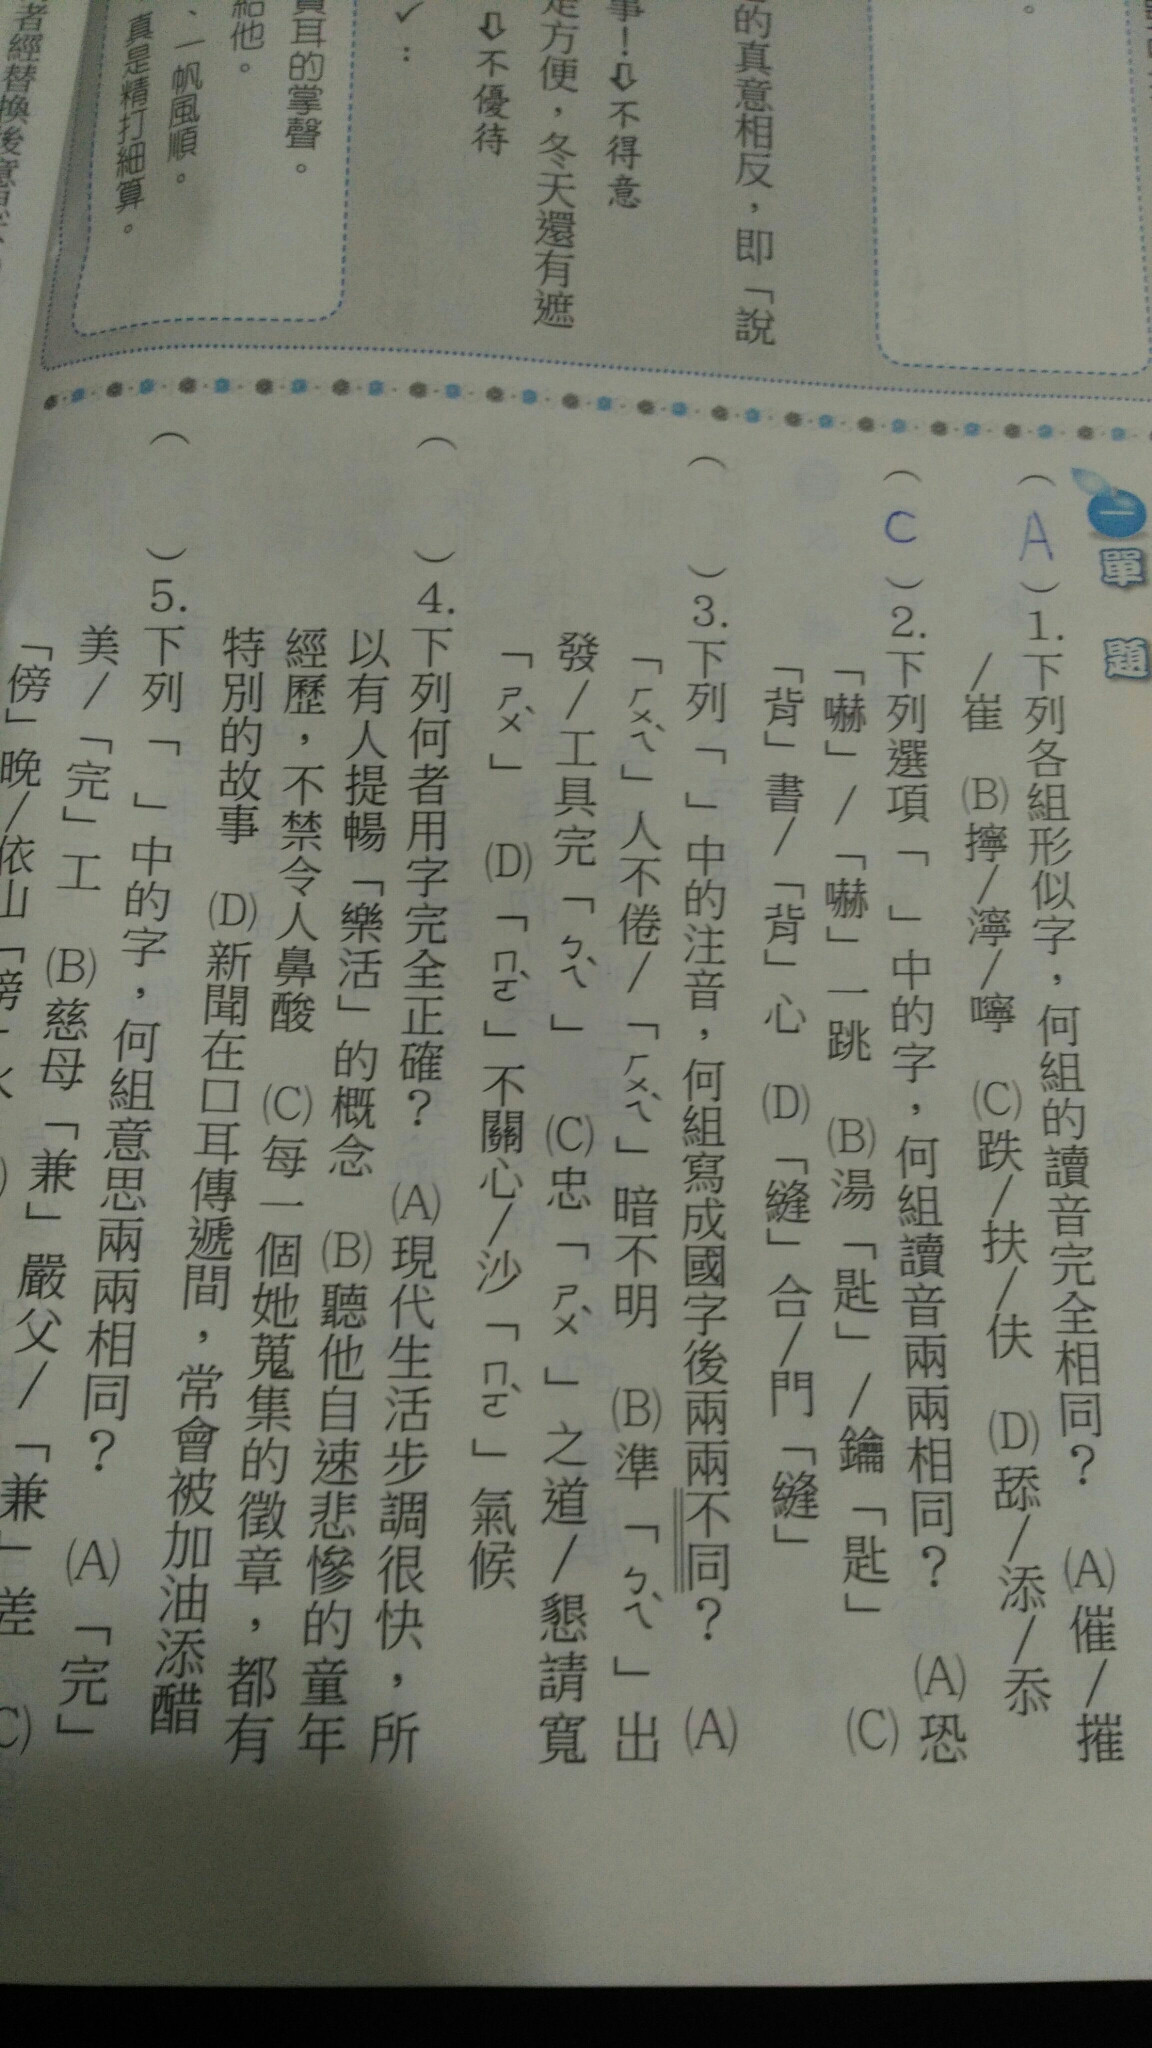 的真意相反，即「說
事！⇩不得意
方便，冬天還有遮
⇩不優待
✓：
耳的掌聲。
給他。
、一帆風順。
真是精打細算。
者經替換後意
一 單題
（A）1.下列各組形似字，何組的讀音完全相同？　(A)催/摧
/崔　(B)擰/濘/嚀　(C)跌/扶/伕　(D)舔/添/忝
（C）2.下列選項「　」中的字，何組讀音兩兩相同？　(A)恐
「嚇」/「嚇」一跳　(B)湯「匙」/鑰「匙」　(C)
「背」書/「背」心　(D)「縫」合/門「縫」
（　）3.下列「　」中的注音，何組寫成國字後兩兩不同？　(A)
「ㄏㄨㄟˋ」人不倦/「ㄏㄨㄟˋ」暗不明　(B)準「ㄅㄟˋ」出
發/工具完「ㄅㄟˋ」　(C)忠「ㄕㄨˋ」之道/懇請寬
「ㄕㄨˋ」　(D)「ㄇㄛˋ」不關心/沙「ㄇㄛˋ」氣候
（　）4.下列何者用字完全正確？　(A)現代生活步調很快，所
以有人提暢「樂活」的概念　(B)聽他自速悲慘的童年
經歷，不禁令人鼻酸　(C)每一個她蒐集的徵章，都有
特別的故事　(D)新聞在口耳傳遞間，常會被加油添醋
（　）5.下列「　」中的字，何組意思兩兩相同？　(A)「完」
美/「完」工　(B)慈母「兼」嚴父/「兼」差　(C)
「傍」晚/依山「傍」水